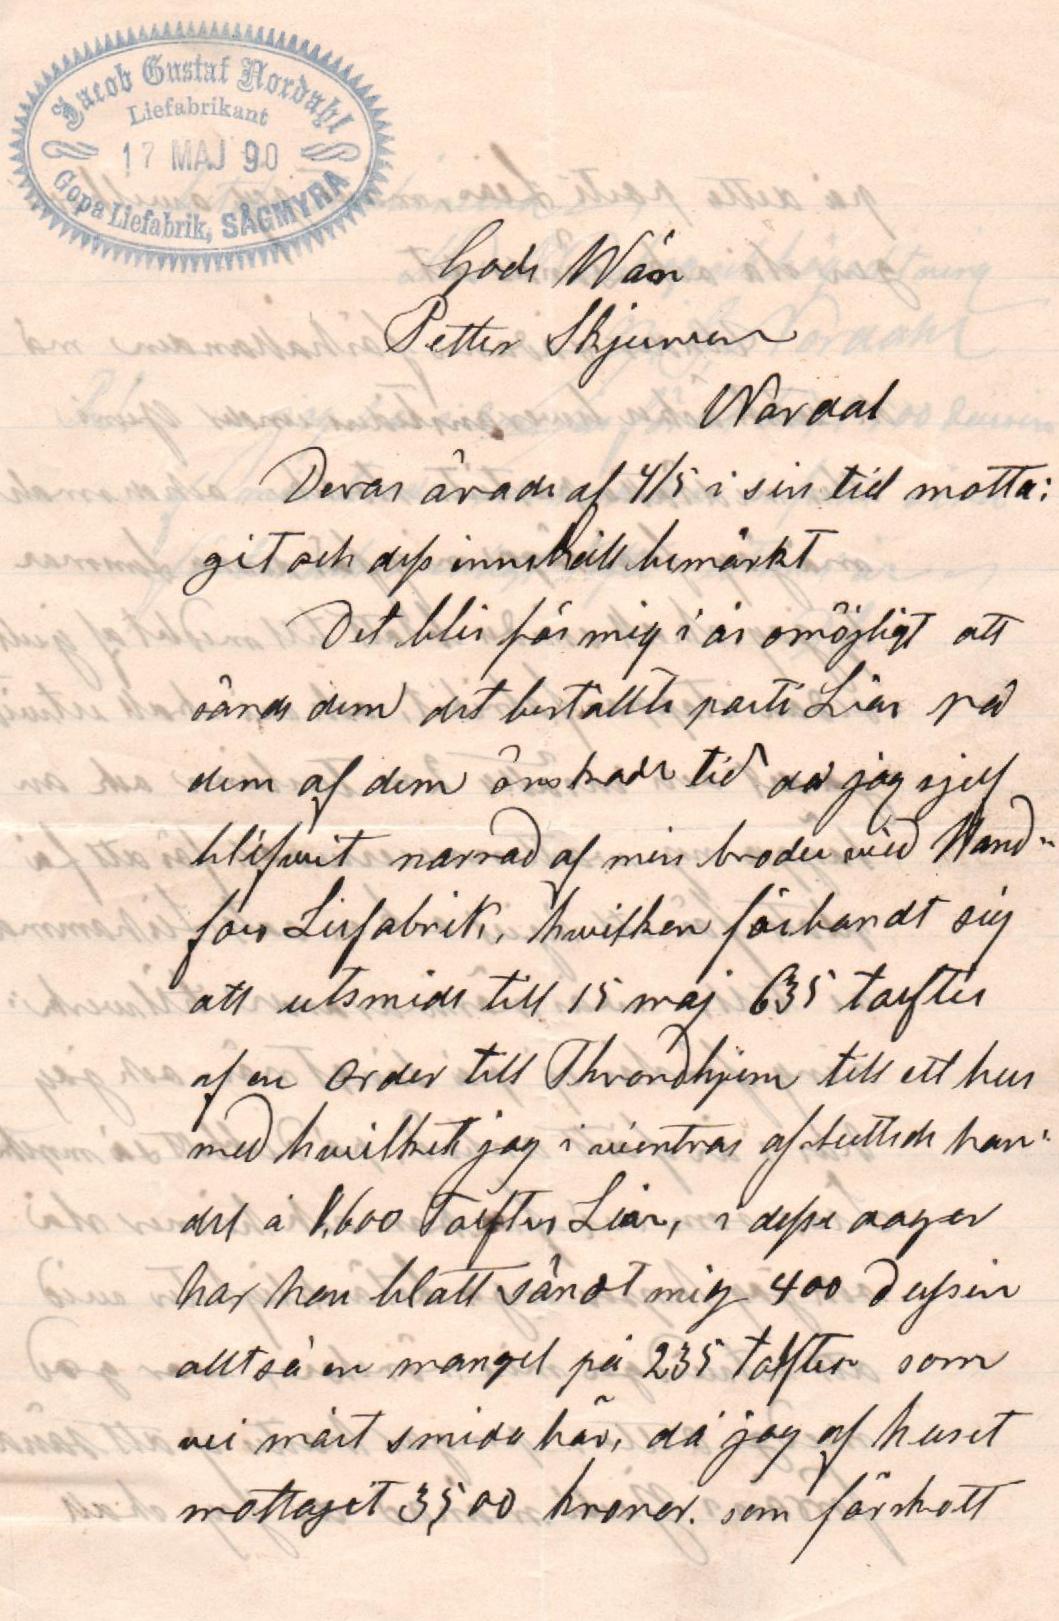 Jacob Gustaf Nordahl
Liefabrikant
17 MAJ 90
Gopa Liefabrik, SÅGMYRA
Gode Wän
Petter
Wärdal
Deras ärade af 4/5 i sin tid motta:
git och dess innehåll bemärkt
Det blir för mig i år omöjligt att
sända dem det bestälte parti Liar på
dem af dem önskade tid då jag sjelf
blifwit narrad af min broder wid Wand-
fors Liefabrik, hwilken förbandt sig
att utsmide till 15 maj 635 tolfter
af en order till Throndhjem till ett hus
med hwilket jag i wintras afslutade han:
del å 1,600 Tolfter Liar, i desse dager
har han blått sändt mig 400 dussin
alltså en mangel på 235 tolfter som
wi måst smida här, då jag af huset
mottaget 3500 kroner. som förskott